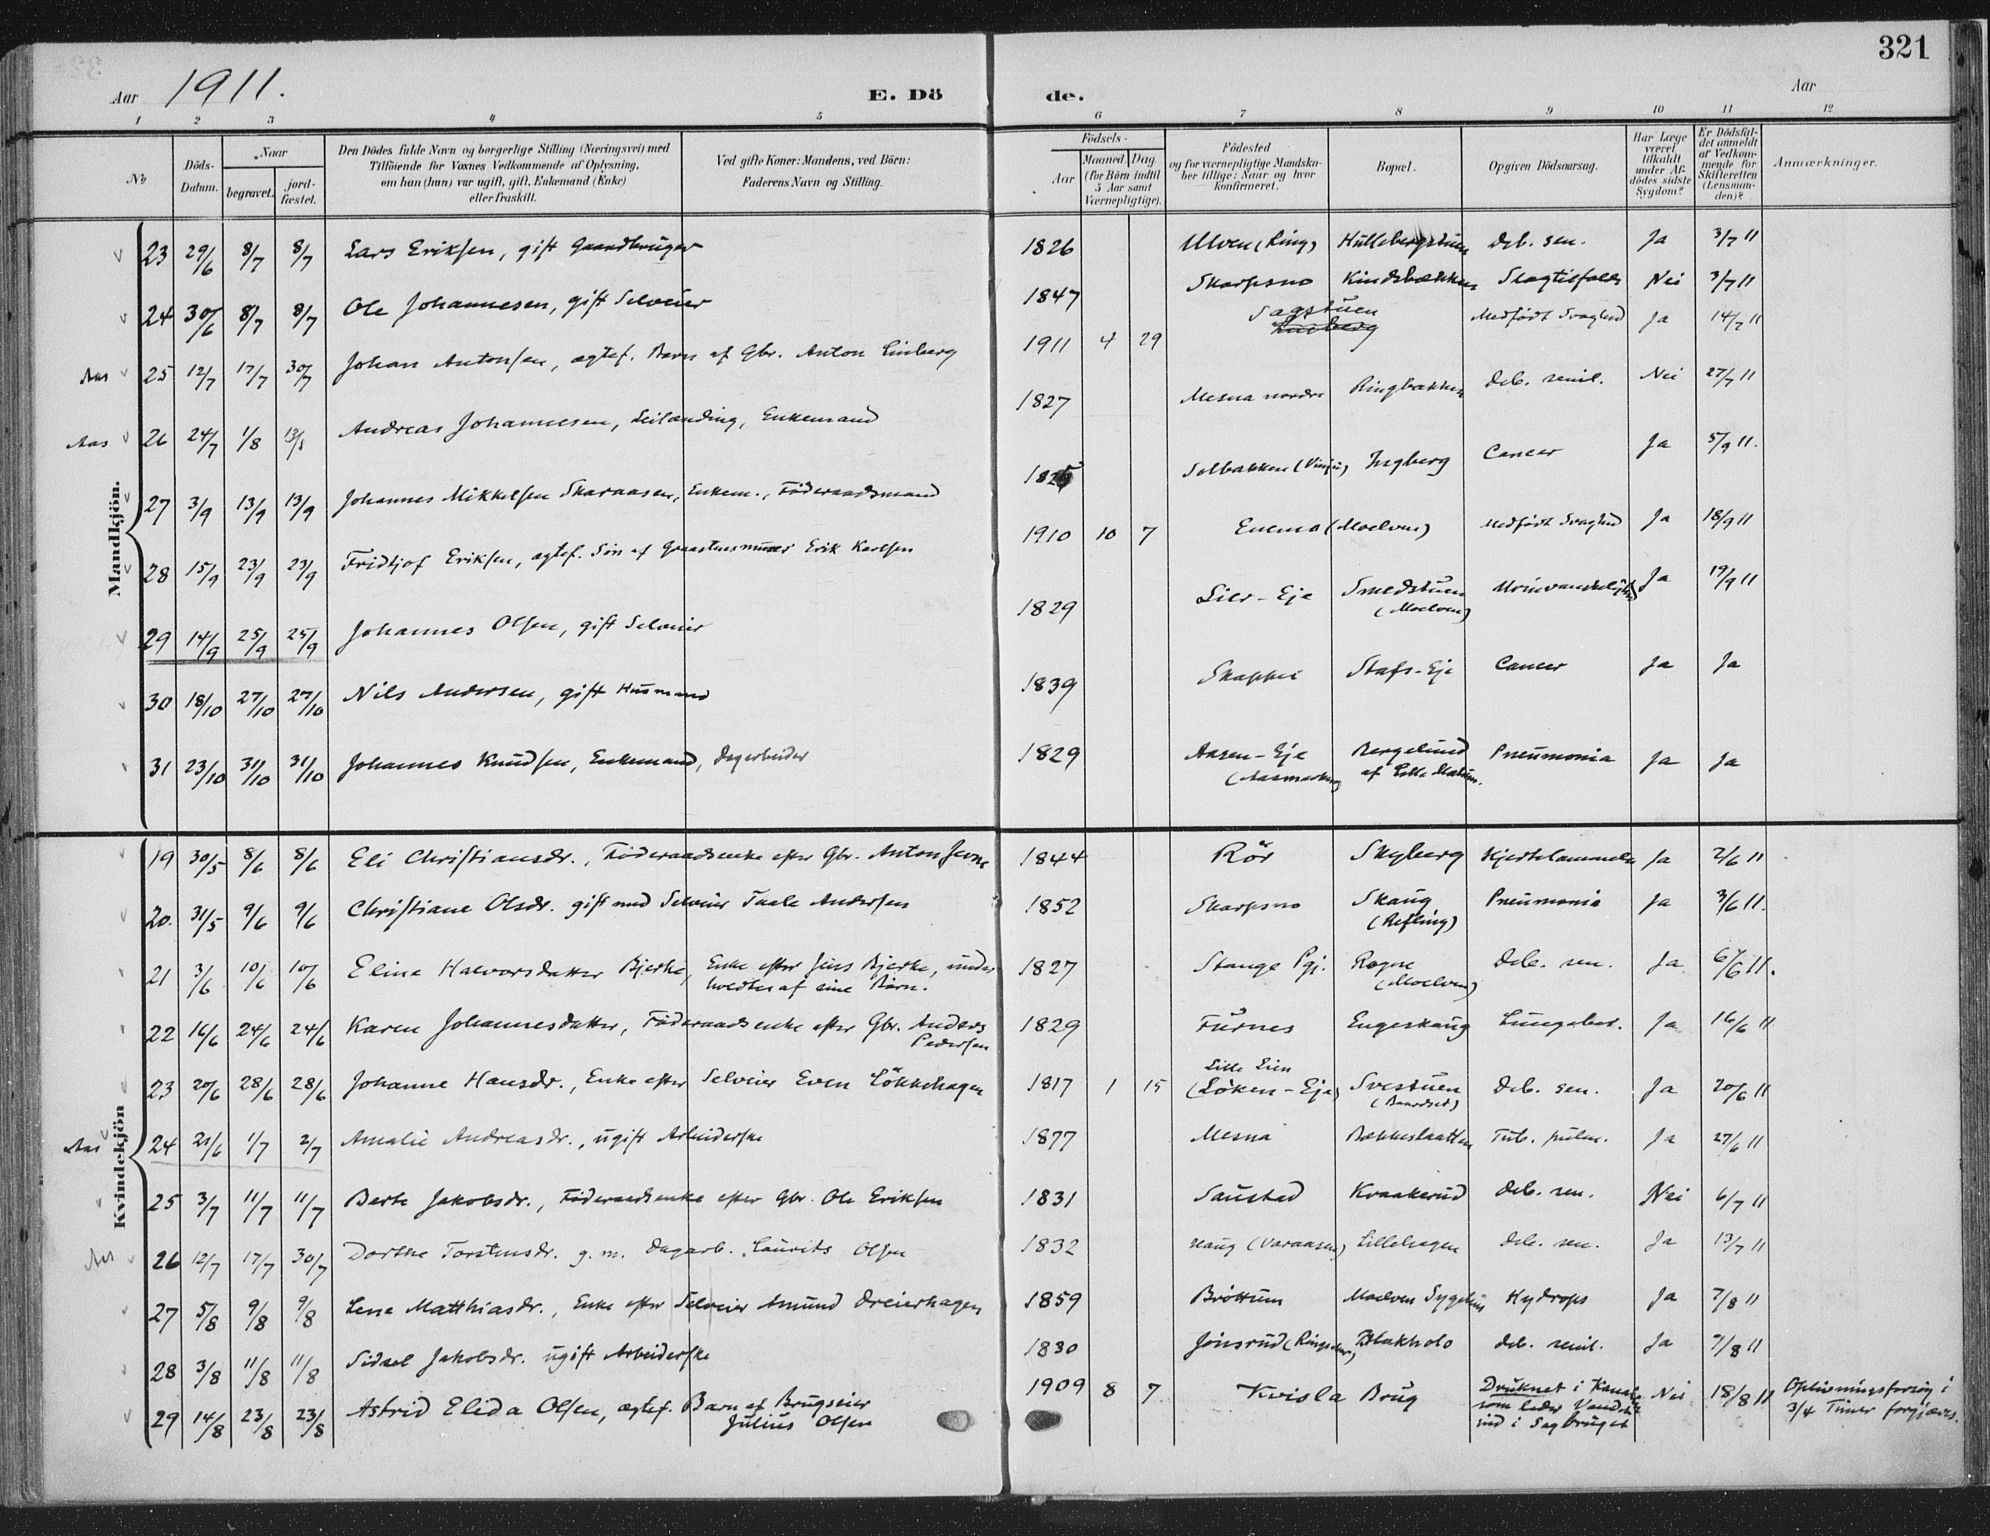 321
Aar 1911.
E. Döde.
Aar
1 2 3 4 5 6 7 8 9 10 11 12
No
Döds-Datum.
Naar
begravet.
jord-fæstet.
Den Dödes fulde Navn og borgerlige Stilling (Næringsvei) med
Tilföiende for Voxnes Vedkommende af Oplysning,
om han (hun) var ugift, gift, Enkemand (Enke)
eller fraskilt.
Ved gifte Koner: Mandens, ved Börn:
Faderens Navn og Stilling.
Födsels-
Aar
Maaned. Dag
(for Börn indtil
5 Aar samt
Værnepligtige).
Födested
og for værnepligtige Mandska-
ber tillige: Naar og hvor
konfirmeret.
Bopæl.
Opgiven Dödsaarsag.
Har Læge
været
tilkaldt
under Af-
dödes sidste
Sygdom?
Er Dödsfal-
det anmeldt
af Vedkom-
mende for
Skifteretten
(Lensman-
den)?
Anmærkninger.
Mandkjön.
23 29/6 8/7 8/7 Lars Eriksen, gift Gaardbruger 1826 Ulven (Ring) Hullebergstuen deb. sen. Ja 3/7 11
24 30/6 8/7 8/7 Ole Johannesen, gift Selveier 1847 Skarpsno Kindsbækken Slagtilfælde Nei 3/7 11
Aas 25 12/7 17/7 30/7 Johan Antonsen, ægtef. Barn af Gbr. Anton Linberg 1911 4 29 Sagstuen Medfödt Svaghed Ja 14/7 11
Aas 26 24/7 1/8 13/8 Andreas Johannesen, Leilænding, Enkemand 1827 Mesna nordre Ringbakken deb. senil. Nei 27/7 11
27 3/9 13/9 13/9 Johannes Mikkelsen Skaraasen, Enkem., Föderaadsmand 1825 Solbakken Ingberg Cancer Ja 5/9 11.
28 15/9 23/9 23/9 Fridtjof Eriksen, ægtef. Sön af Erik Karlsen 1910 10 7 Enemo (Moelven) Medfödt Svaghed Ja 18/9 11
29 14/9 25/9 25/9 Johannes Olsen, gift Selveier 1829 Lier-Eje Smedstuen (Moelven) Ja 19/9 11
30 18/10 27/10 27/10 Nils Andersen, gift Husmand 1839 Skappel Stafs-Eje Cancer Ja Ja
31 23/10 31/10 31/10 Johannes Knudsen, Enkemand, Dagarbeider 1829 Aasen-Eje (Aasmarken) Bergelund af Lille Pneumonia Ja Ja
Kvindekjön
19 30/5 8/6 8/6 Eli Christiansdr., Föderaadsenke efter Gbr. Anton Jevne 1844 Rör Skyberg Hjertelammelse Ja 2/6 11
20. 31/5 9/6 9/6 Christiane Olsdr. gift med Selveier Taale Andersen 1852 Skarpsno Skaug (Refling) Pneumonia Ja 3/6 11.
21 3/6 10/6 10/6 Eline Halvorsdatter Bjerke, Enke efter Jens Bjerke, under-
holdtes af sine Börn. 1827 Stange Pgj. Rogne (Moelven) Deb. sen. Ja 6/6 11.
22 16/6 24/6 24/6 Karen Johannesdatter, Föderaadsenke efter Gbr. Anders
Pedersen 1829 Furnes Engeskaug Lungebet. Ja 16/6 11
23 20/6 28/6 28/6 Johanne Hansdr., Enke efter Selveier Even Lökkehagen 1817 1 15 Lille Lien (Löken-Eje) Svestuen (Baardset) Deb. sen. Ja 20/6 11
Aas 24 21/6 1/7 2/7 Amalie Andreasdr., ugift Arbeiderske 1877 Mesna Bækkeslaatten Tub. pulm. Ja 27/6 11
25 3/7 11/7 11/7 Berte Jakobsdr., Föderaadsenke efter Gbr. Ole Eriksen 1831 Saustad Kvaakerud deb. sen. Nei 6/7 11
Aas 26 12/7 17/7 30/7 Dorthe Torstensdr. g. m. Dagarb. Laurits Olsen 1832 Haug (Varaasen) Lillehagen deb. sen. Ja 13/7 11
27 5/8 9/8 9/8 Lene Matthiasdr., Enke efter Selveier Amund Dreierhagen 1859 Bröttum Moelven Sygehus Hydrops Ja 7/8 11
28 3/8 11/8 11/8 Sidsel Jakobsdr. ugift Arbeiderske 1830 Jönsrud (Ringsaker) Blakholo deb. senil. Ja 7/8 11
29 14/8 23/8 23/8 Astrid Elida Olsen, ægtef. Barn af Brugseier
Julius Olsen 1909 8 7 Kvisla Brug Druknet i Kanal
som leder Vandet
ind i Sagbruget Nei 18/8 11 Oplivningsforsög i
3/4 Timer forgjæves.